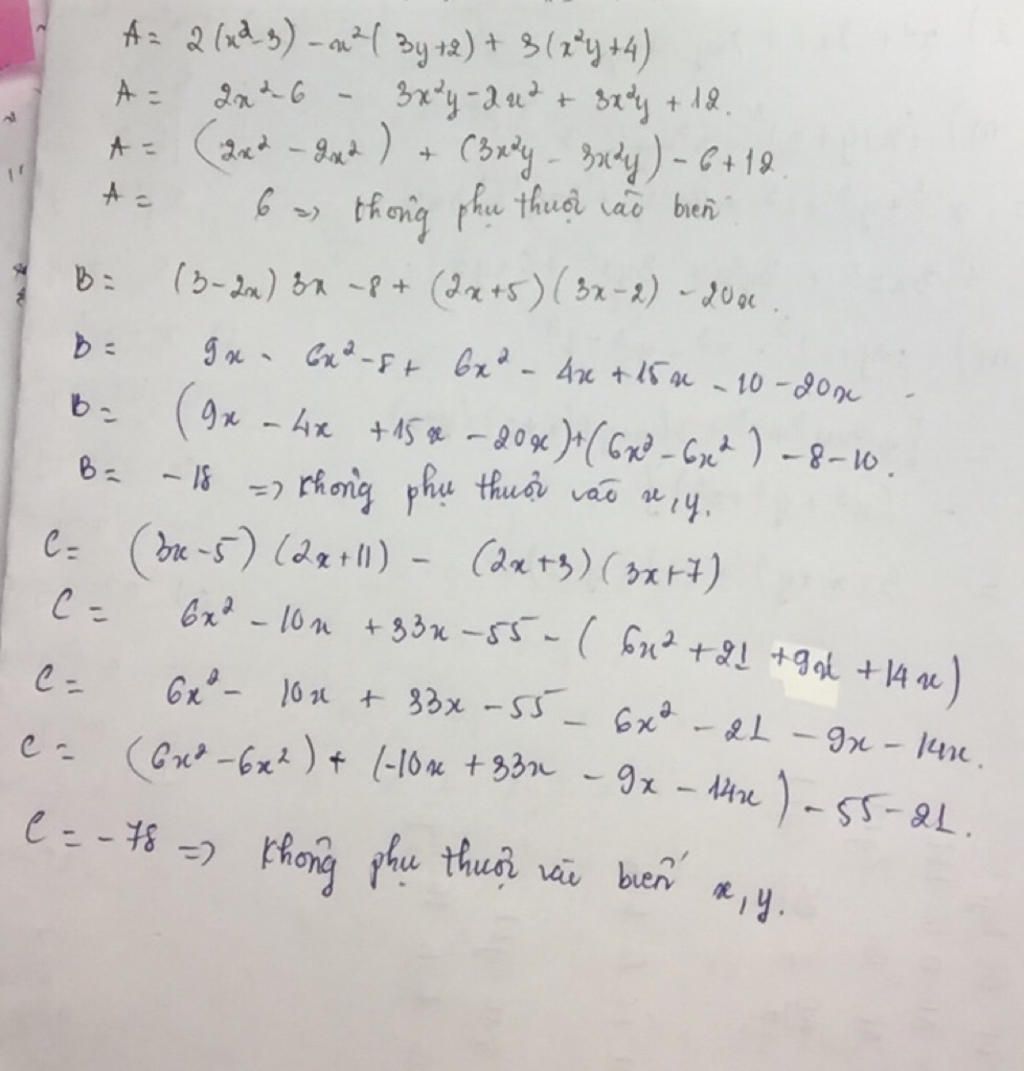 A = 2(x²-3) - x²(3y+2) + 3(x²y+4)
A = 2x²-6 - 3x²y-2x² + 3x²y + 12.
A = (2x² - 2x²) + (3x²y - 3x²y) - 6+12.
A = 6 => không phụ thuộc vào biến
B = (3-2x) 3x -8 + (2x+5)(3x-2) -20x.
B = 9x - 6x²-8+ 6x² - 4x +15x - 10 -20x
B = (9x - 4x +15x - 20x)+(6x²-6x²) -8-10.
B = -18 => không phụ thuộc vào x,y.
C = (3x-5)(2x+11) - (2x+3)(3x+7)
C = 6x² - 10x +33x -55 - (6x² +21 +9x +14x)
C = 6x² - 10x + 33x -55 - 6x² - 21 - 9x - 14x.
C = (6x²-6x²) + (-10x +33x - 9x - 14x) -55-21.
C = -78 => không phụ thuộc vào biến x,y.